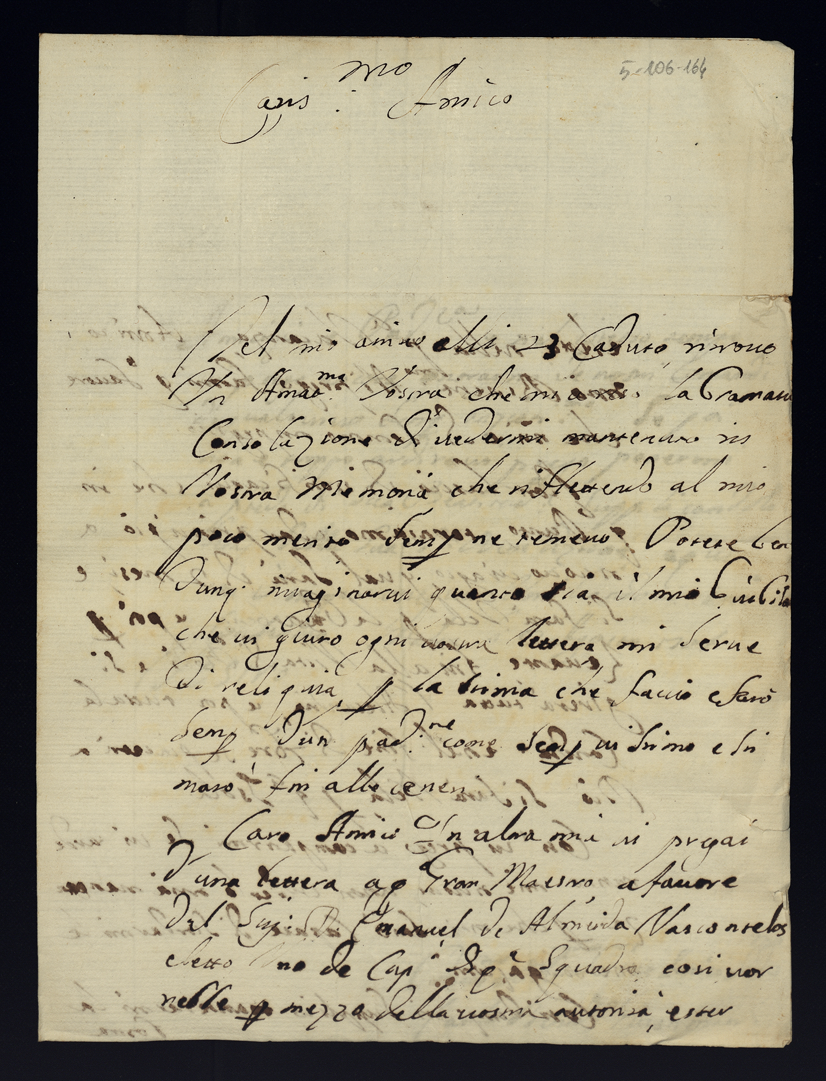 5-e106-164
Caris:mo Amico
Nel mio arrivo alli 23 Caduto, ritrovo
Un Amao.ma Vostra che mi la bramata
Consolazione di vedermi mantenuto in
Vostra Memoria che riflettendo al mio
poco merito semp ne temevo. Potete ben
dunq. imaginarvi quanto sia il mio Giubilo
che vi giuro ogni vostra lettera mi serve
di reliquia, p la stima che faccio e farò
semp. d'un pad.ne come semp vi stimo e sti
marò fin alle ceneri
Caro Amico In altra mia vi pregai
d'una lettera a q Gran Maestro, a favore
del Emanuel de Almeida Vasconcelos
eletto Uno de Cap. di q Squadra, così vor
rebbe p mezzo della vostra autorità, ester